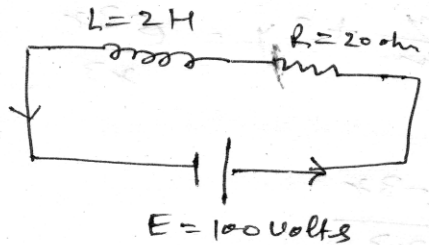 L = 2 H
R = 20 ohm
E = 100 Volts